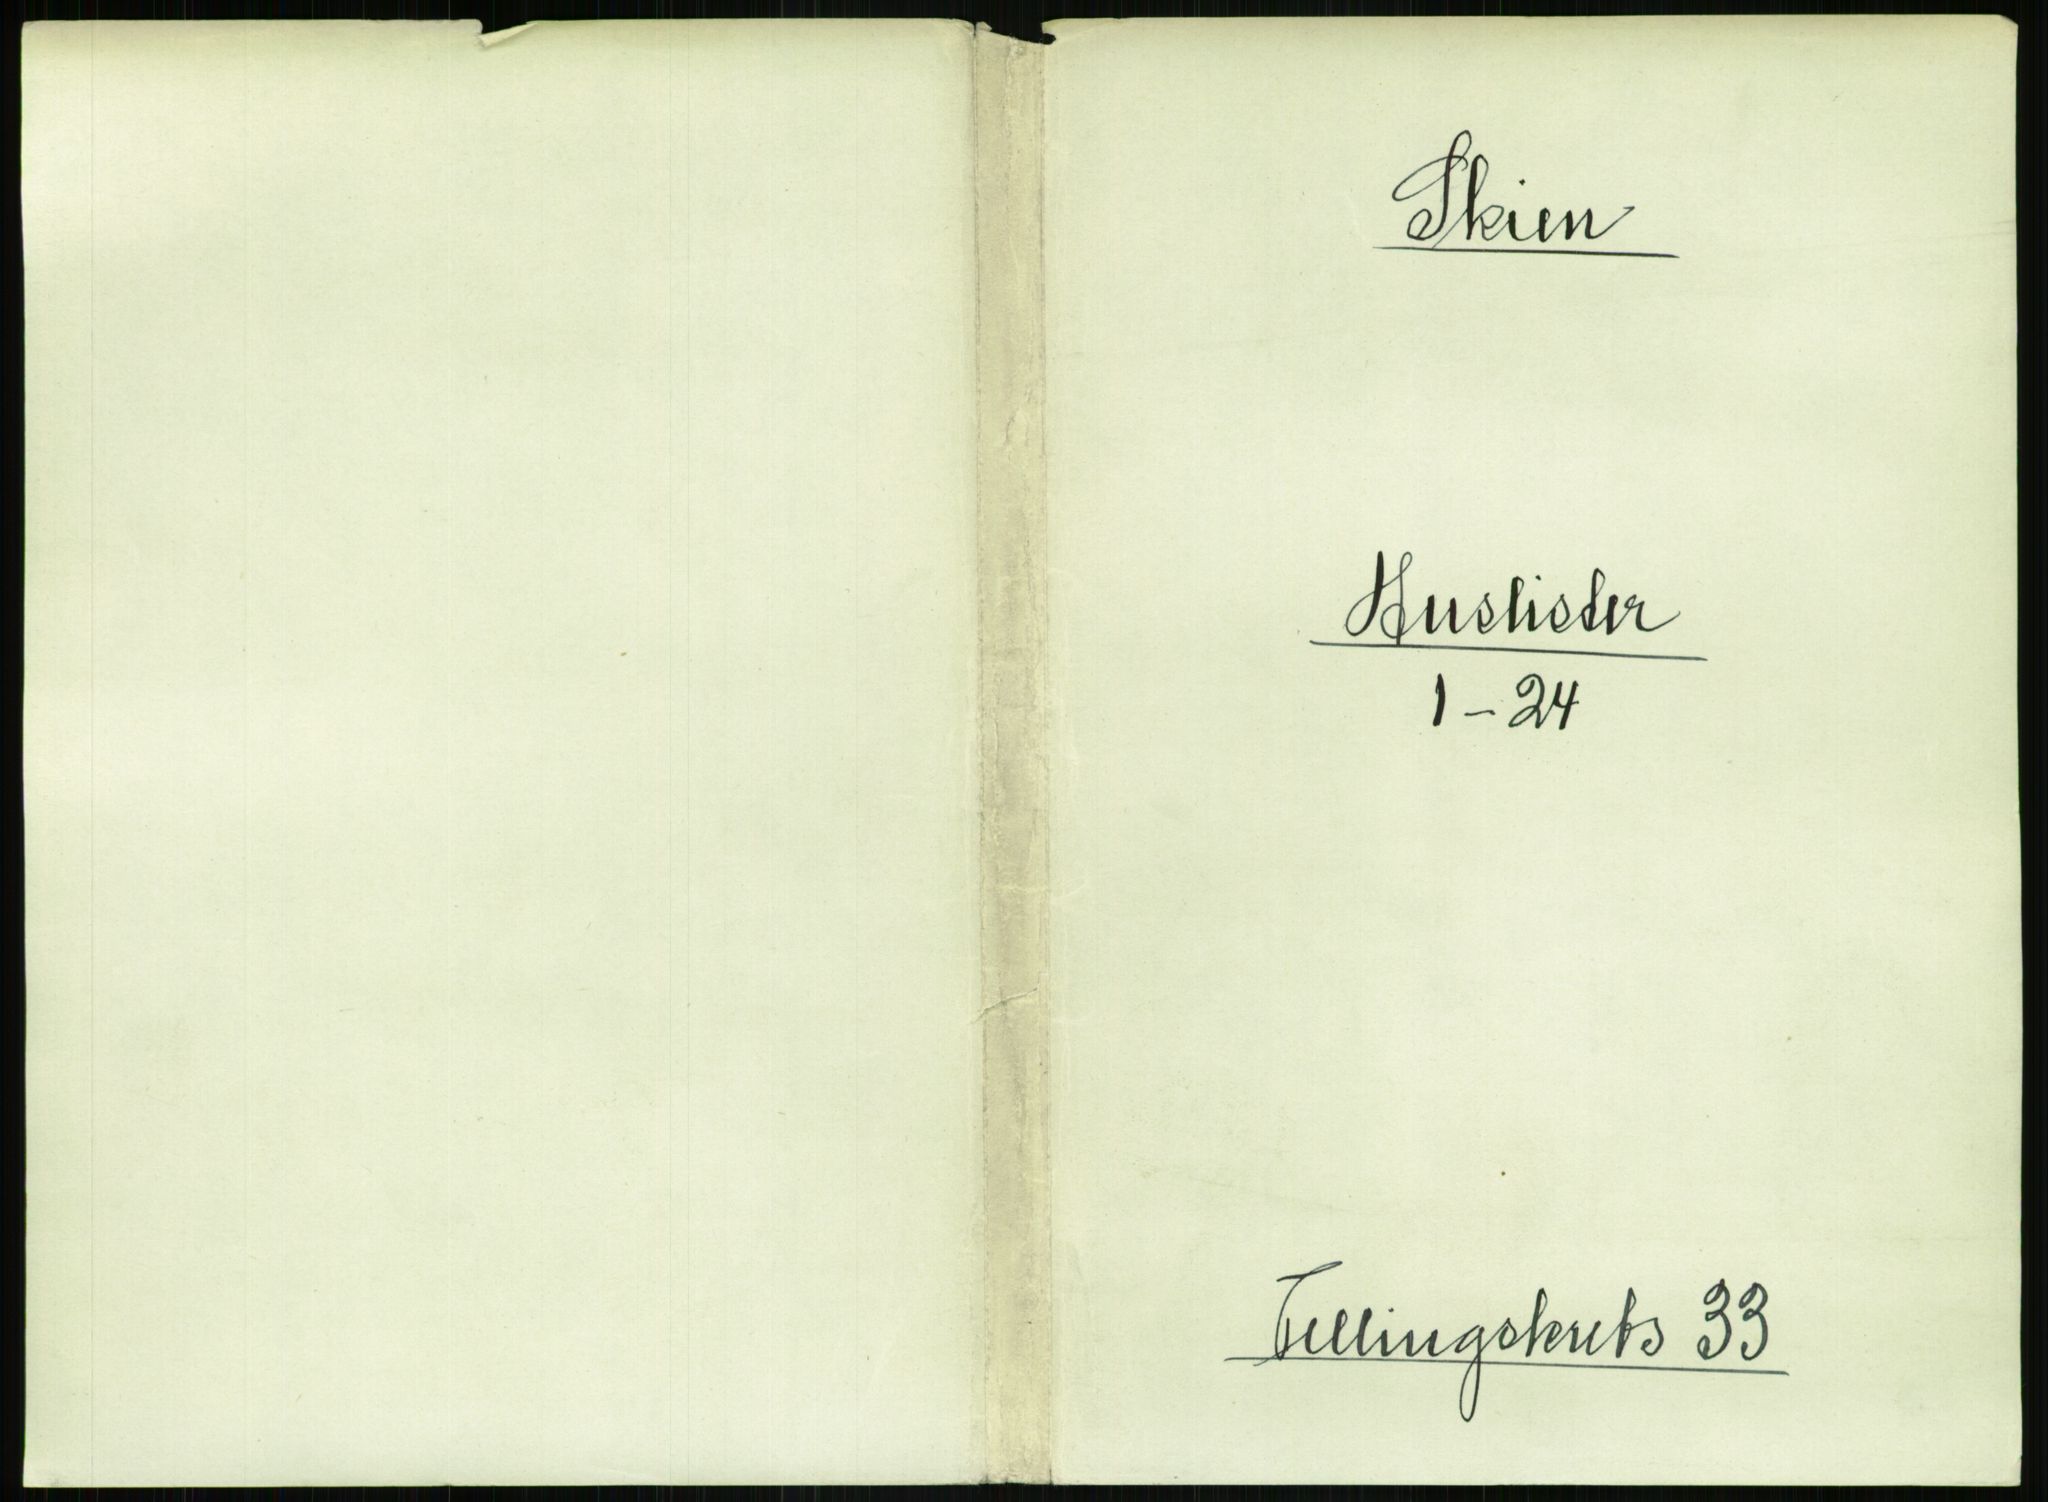 Skien
Huslister
1-24
Tellingskrets 33